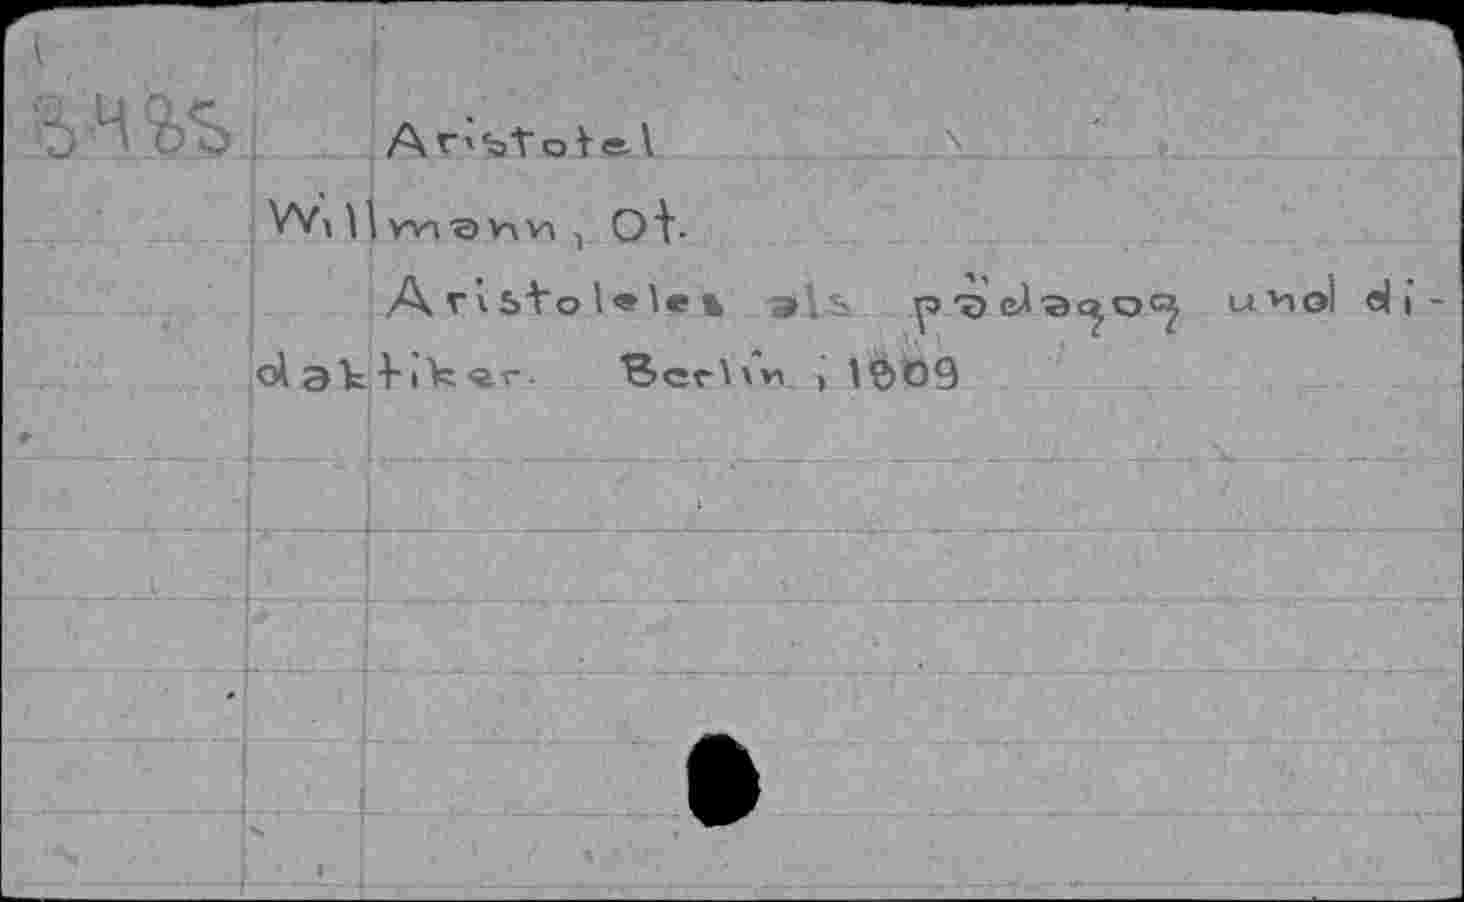 3485
Aristotel
Willmann, Ot.
Aristoteles als pädagog und di-
daktiker. Berlin, 1909